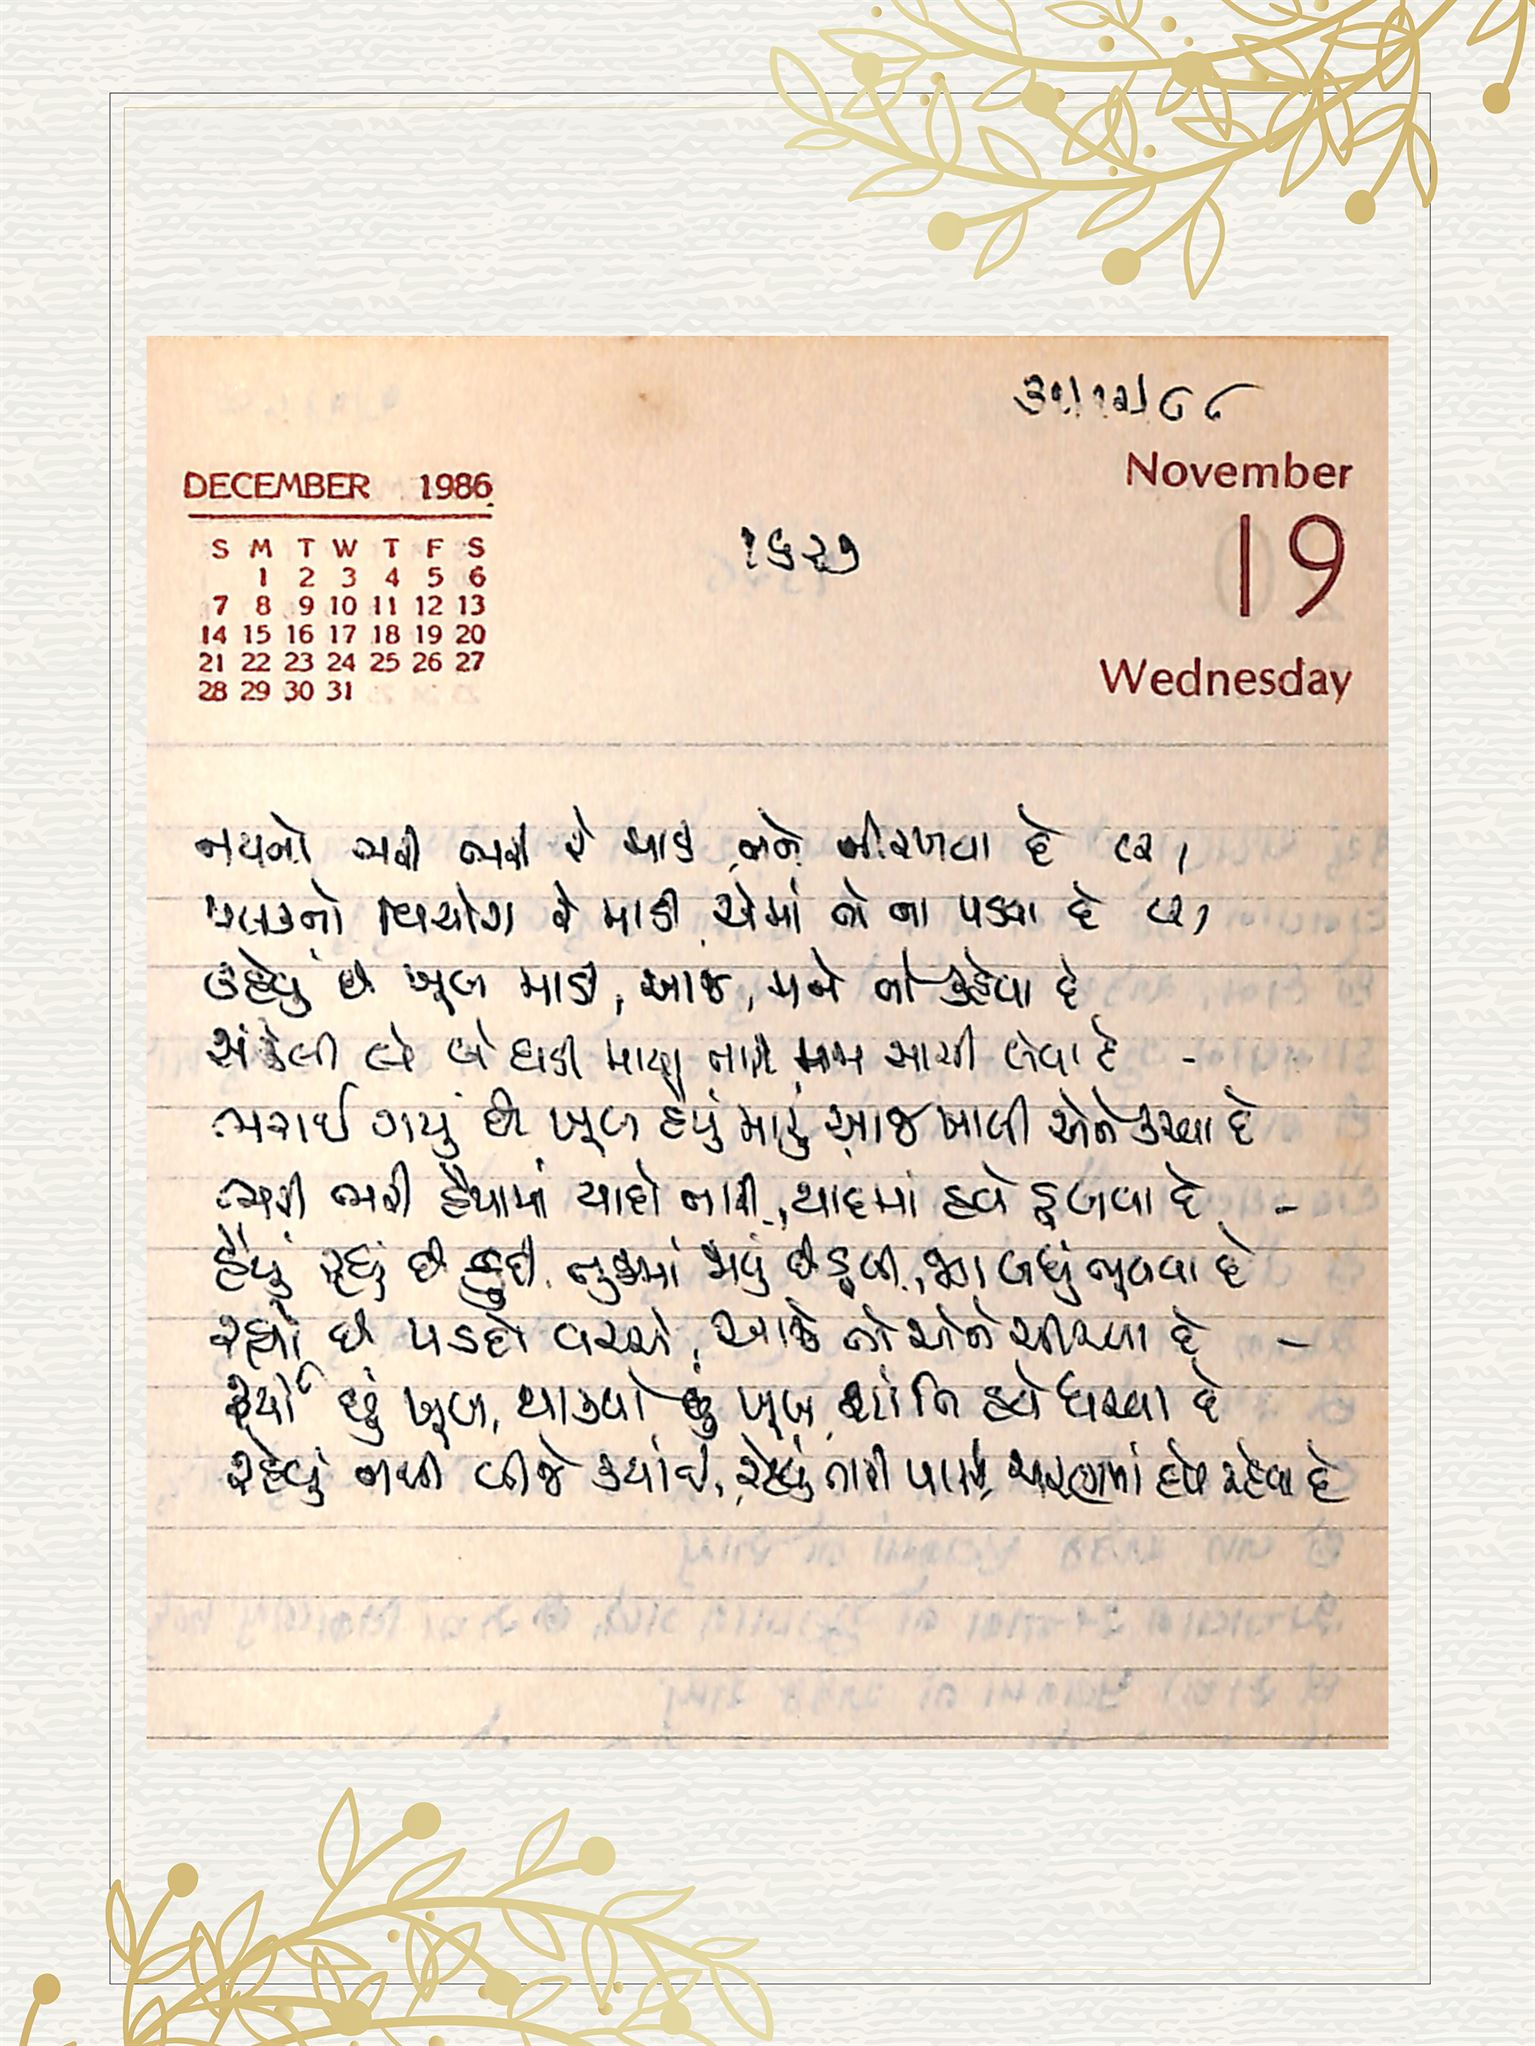 DECEMBER 1986
S M T W T F S
1 2 3 4 5 6
7 8 9 10 11 12 13
14 15 16 17 18 19 20
21 22 23 24 25 26 27
28 29 30 31
૧૬૨૭
November
19
Wednesday
નયનો ભરી ભરી રે માડી તને નીરખવા દે (૨)
પલકનો વિયોગ રે માડી એમાં તો ના પડવા દે (૨)
કહેવું છે ખૂબ માડી, આજ, મને તો કહેવા દે
સંકેલી લે બે ઘડી માયા તારી મામ સાચી લેવા દે -
ભરાઈ ગયું છે ખૂબ હૈયું મારું આજ ખાલી એને કરવા દે
ભરી ભરી હૈયામાં યાદો તારી, યાદમાં હવે ડૂબવા દે -
હૈયું રહ્યું છે કુદી તુજમાં જાવું છે ડૂબી, જગ બધું ભૂલવા દે
રહ્યો છે પડદો વચ્ચે, આજે તો એને ચીરવા દે -
ફર્યો છું ખૂબ, થાક્યો છું ખૂબ શાંતિ હવે ધરવા દે
રહેવું નથી બીજે ક્યાંઈ, રહેવું તારી પાસે, ચરણમાં હવે રહેવા દે